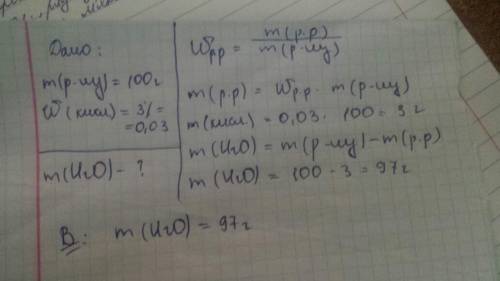 Дано:
m(р-ну) = 100г
W(кисл) = 3% =
= 0,03
m(H₂O) - ?
Wрр = m(р.р) / m(р-ну)
m(р.р) = Wр.р. · m(р-ну)
m(кисл) = 0,03 · 100 = 3 г
m(H₂O) = m(р-ну) - m(р.р)
m(H₂O) = 100 - 3 = 97г
В: m(H₂O) = 97г